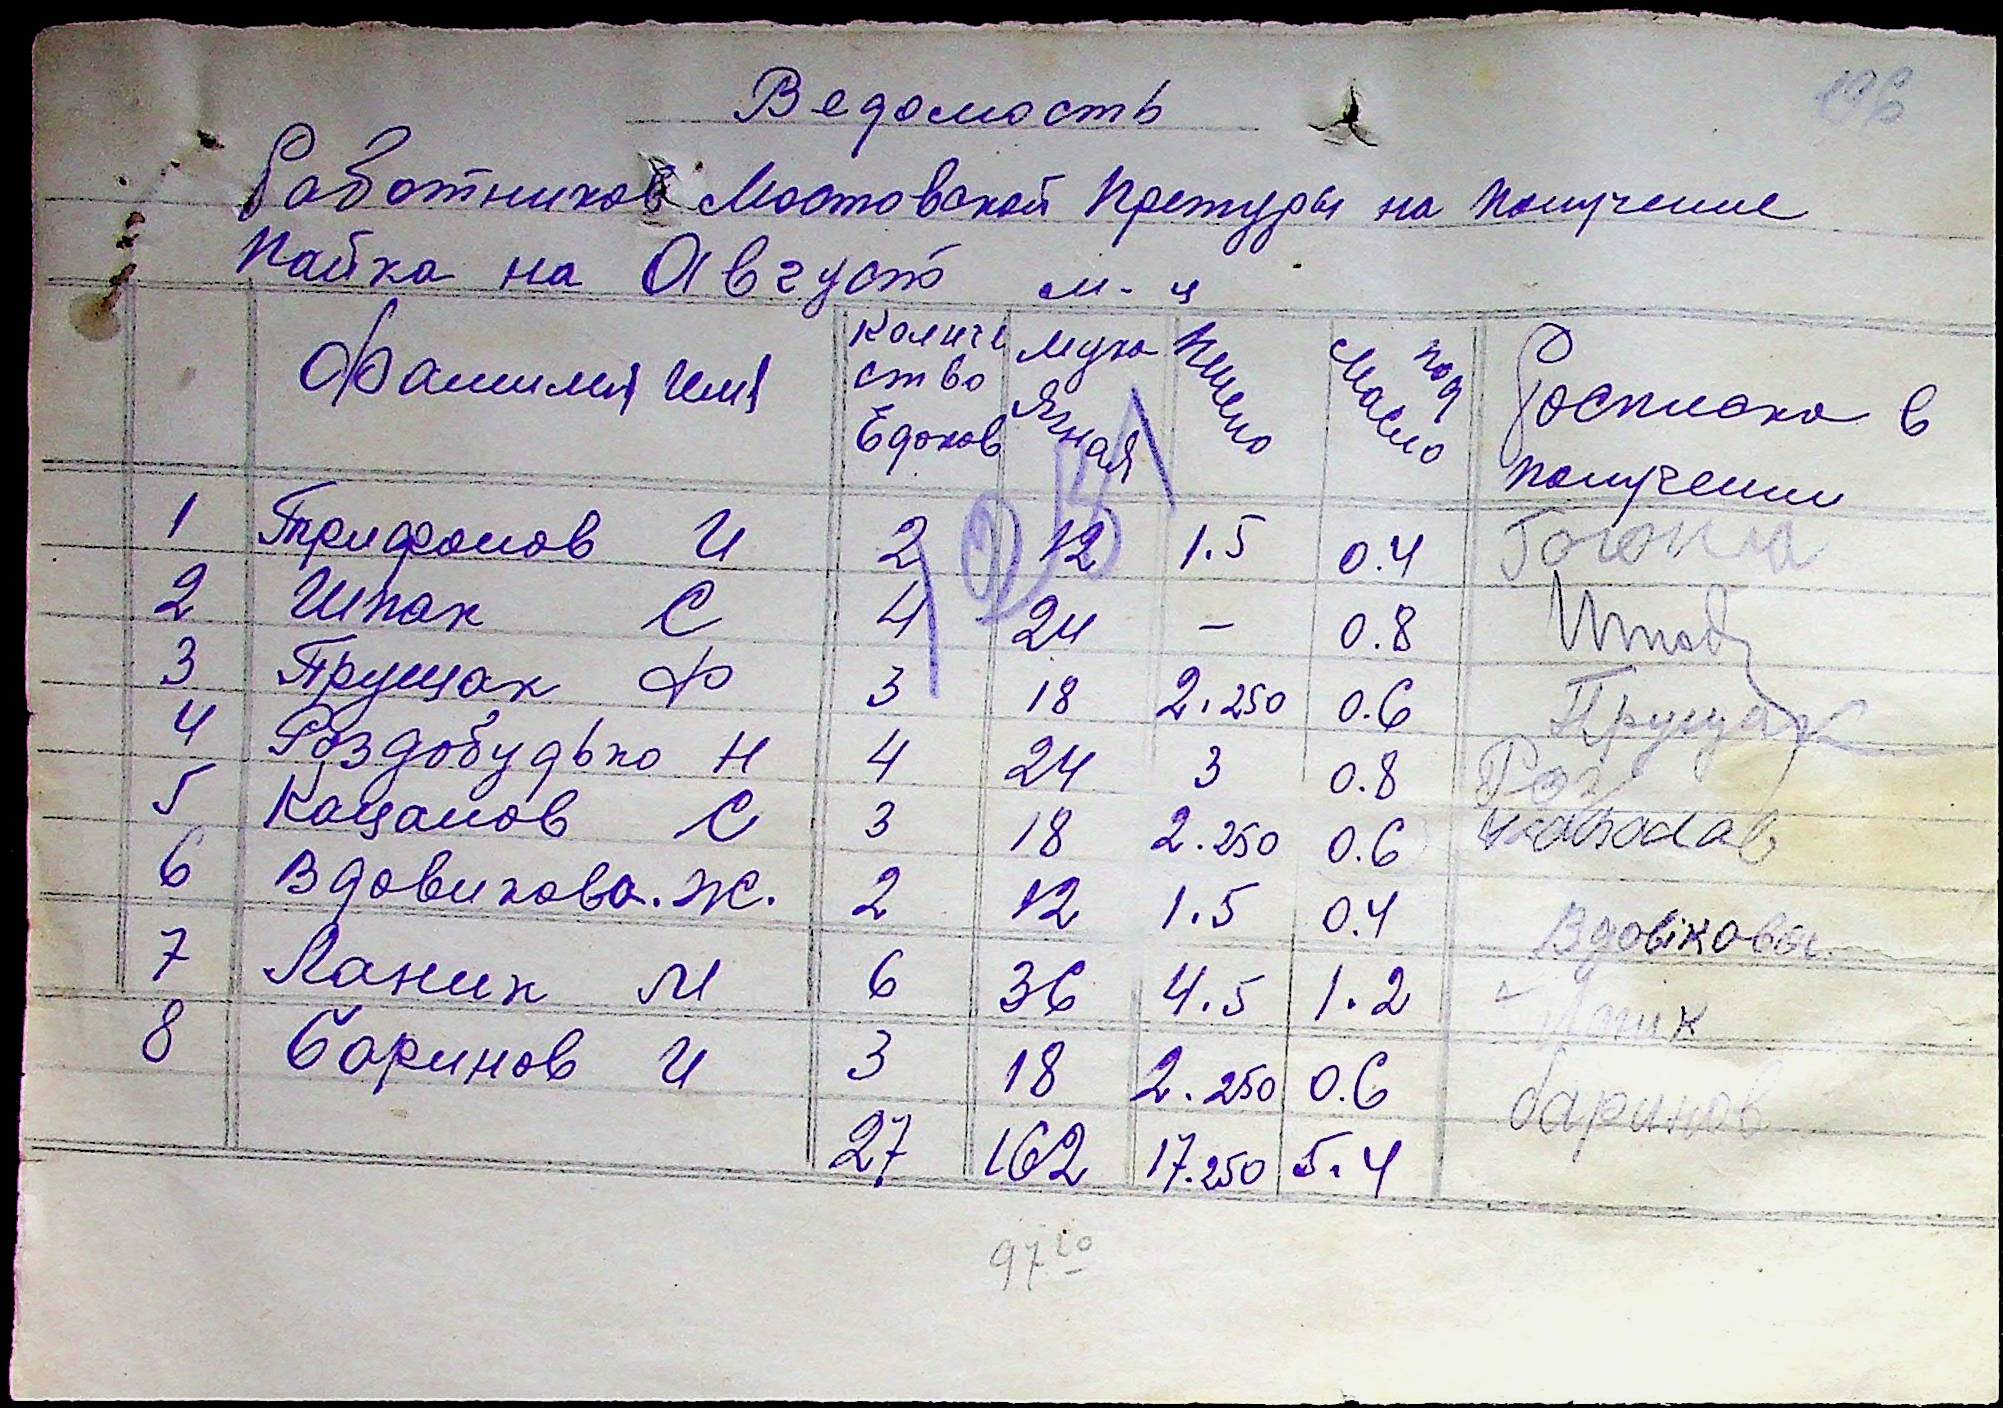 196
Ведомость
Работников Мостовской Претуры на получение
Пайка на Август м-ц
Фамилия Имя Количество Едоков Мука Ячная Пшено под Масло Росписка в получении
1 Трифонов И 2 12 1.5 0.4
2 Шпак С 4 24 – 0.8 Шпак
3 Прущак Ф 3 18 2.250 0.6 Прущак
4 Роздобудько Н 4 24 3 0.8 Роз
5 Кацапов С 3 18 2.250 0.6
6 Вдовикова. Ж. 2 12 1.5 0.4 Вдовікова
7 Ланик М 6 36 4.5 1.2 Ланік
8 Баринов И 3 18 2.250 0.6 баринов
27 162 17.250 5.4